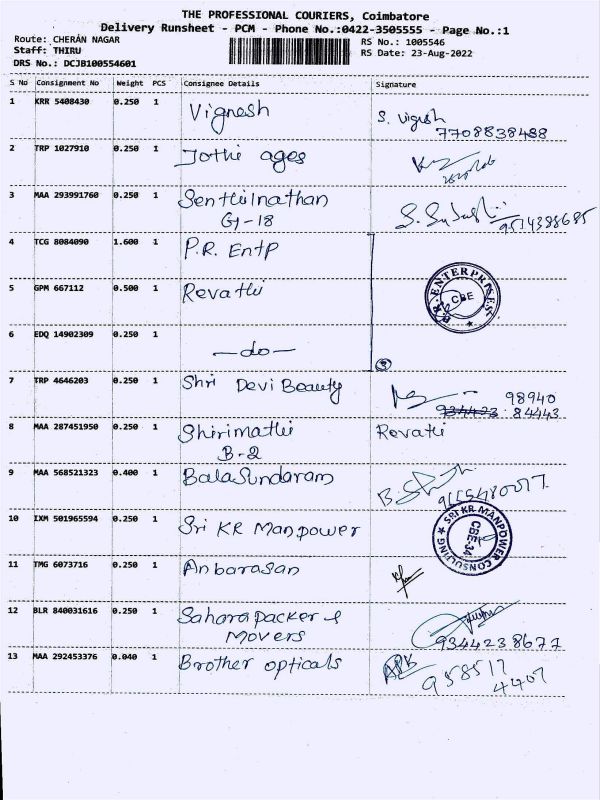 THE PROFESSIONAL COURIERS, Coimbatore
Delivery Runsheet - PCM - Phone No.:0422-3505555 - Page No.:1
Route: CHERAN NAGAR
Staff: THIRU
DRS No.: DCJB100554601
RS No.: 1005546
RS Date: 23-Aug-2022
S No Consignment No Weight PCS Consignee Details Signature
1 KRR 5408430 0.250 1 Vignesh S. Vignesh
7708838488
2 TRP 1027910 0.250 1 Jothi ages
3 MAA 293991760 0.250 1 Senthilnathan
G1-18
9514388685
4 TCG 8084090 1.600 1 P.R. Entp
5 GPM 667112 0.500 1 Revathi
ENTERPRISES
CBE
6 EDQ 14902309 0.250 1 -do-
7 TRP 4646203 0.250 1 Shri Devi Beauty 98940
84443
8 MAA 287451950 0.250 1 Shirimathi Revathi
B-2
9 MAA 568521323 0.400 1 BalaSundaram
10 IXM 501965594 0.250 1 Sri KR Manpower
SRI KR MANPOWER CONSULTING
CBE-34
11 TMG 6073716 0.250 1 Anbarasan
12 BLR 840031616 0.250 1 Sahara packers
Movers
9344238677
13 MAA 292453376 0.040 1 Brother opticals
958517
4407